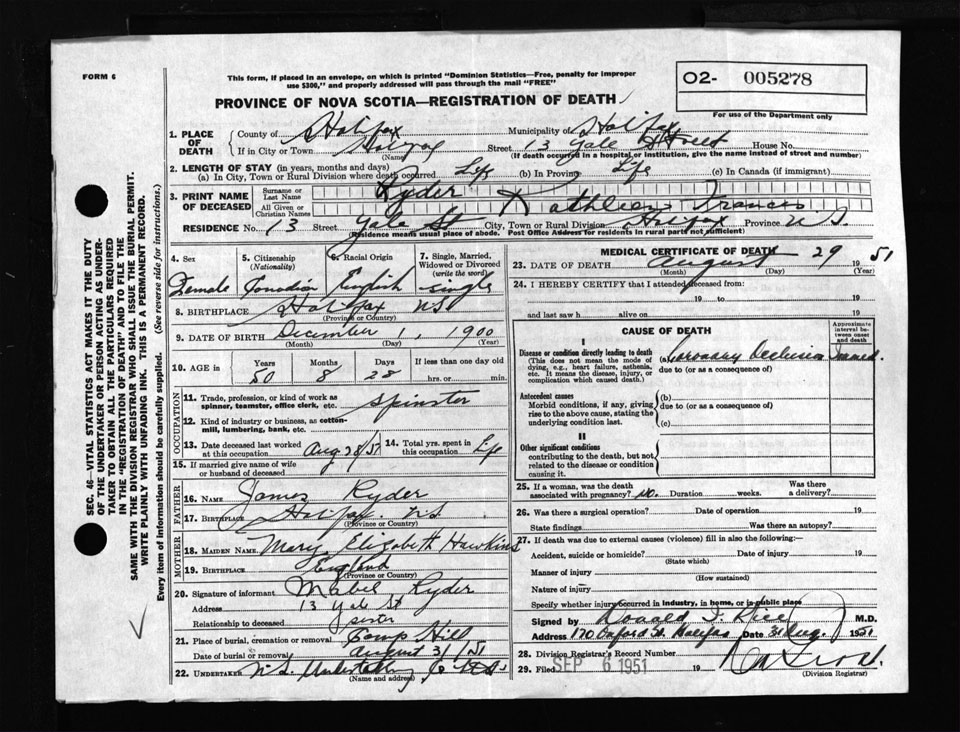 FORM 6
This form, if placed in an envelope, on which is printed "Dominion Statistics—Free, penalty for improper
use $300," and properly addressed will pass through the mail "FREE"
O2- 005278
For use of the Department only
PROVINCE OF NOVA SCOTIA—REGISTRATION OF DEATH
1. PLACE OF DEATH { County of Halifax Municipality of Halifax
If in City or Town Halifax (Name) Street 13 Yale Street House No.
(If death occurred in a hospital or institution, give the name instead of street and number)
2. LENGTH OF STAY (in years, months and days)
(a) In City, Town or Rural Division where death occurred Life (b) In Province Life (c) In Canada (if immigrant)
3. PRINT NAME OF DECEASED { Surname or Last Name Ryder
All Given or Christian Names Kathleen Frances
RESIDENCE No. 13 Street Yale St City, Town or Rural Division Halifax Province N S.
(Residence means usual place of abode. Post Office Address for residents in rural parts not sufficient)
4. Sex Female
5. Citizenship (Nationality) Canadian
6. Racial Origin English
7. Single, Married, Widowed or Divorced (write the word) single
8. BIRTHPLACE Halifax NS
(Province or Country)
9. DATE OF BIRTH December 1, 1900
(Month) (Day) (Year)
10. AGE in { Years 50 Months 8 Days 28 If less than one day old
hrs. or min.
OCCUPATION
11. Trade, profession, or kind of work as
spinner, teamster, office clerk, etc. Spinster
12. Kind of industry or business, as cotton-
mill, lumbering, bank, etc.
13. Date deceased last worked
at this occupation Aug 28/51
14. Total yrs. spent in
this occupation Life
15. If married give name of wife
or husband of deceased
FATHER
16. NAME James Ryder
17. BIRTHPLACE Halifax. N S
(Province or Country)
MOTHER
18. MAIDEN NAME Mary Elizabeth Hawkins
19. BIRTHPLACE England
(Province or Country)
20. Signature of informant Mabel Ryder
Address 13 Yale St
Relationship to deceased sister
21. Place of burial, cremation or removal Camp Hill
Date of burial or removal August 31/51
22. UNDERTAKER N S. Undertaking Co
(Name and address)
MEDICAL CERTIFICATE OF DEATH
23. DATE OF DEATH August 29 1951
(Month) (Day)
24. I HEREBY CERTIFY that I attended deceased from:
19 to 19
and last saw h alive on 19
CAUSE OF DEATH
Approximate interval between onset and death
I
Disease or condition directly leading to death
(This does not mean the mode of
dying, e.g., heart failure, asthenia,
etc. It means the disease, injury, or
complication which caused death.)
(a) Coronary Occlusion Immed.
due to (or as a consequence of)
Antecedent causes
Morbid conditions, if any, giving
rise to the above cause, stating the
underlying condition last.
(b)
due to (or as a consequence of)
(c)
II
Other significant conditions
contributing to the death, but not
related to the disease or condition
causing it.
25. If a woman, was the death
associated with pregnancy? no. Duration weeks. Was there a delivery?
26. Was there a surgical operation? Date of operation 19
State findings Was there an autopsy?
27. If death was due to external causes (violence) fill in also the following:—
Accident, suicide or homicide? Date of injury 19
(State which)
Manner of injury
(How sustained)
Nature of injury
Specify whether injury occurred in industry, in home, or in public place
Signed by Donald I. Rice M.D.
Address 170 Oxford St. Halifax Date 31 Aug. 1951
28. Division Registrar's Record Number
29. Filed SEP 6 1951
(Division Registrar)
SEC. 46—VITAL STATISTICS ACT MAKES IT THE DUTY
OF THE UNDERTAKER OR PERSON ACTING AS UNDER-
TAKER TO OBTAIN ALL THE PARTICULARS REQUIRED
IN THE "REGISTRATION OF DEATH" AND TO FILE THE
SAME WITH THE DIVISION REGISTRAR WHO SHALL ISSUE THE BURIAL PERMIT.
WRITE PLAINLY WITH UNFADING INK. THIS IS A PERMANENT RECORD.
Every item of information should be carefully supplied. (See reverse side for instructions.)